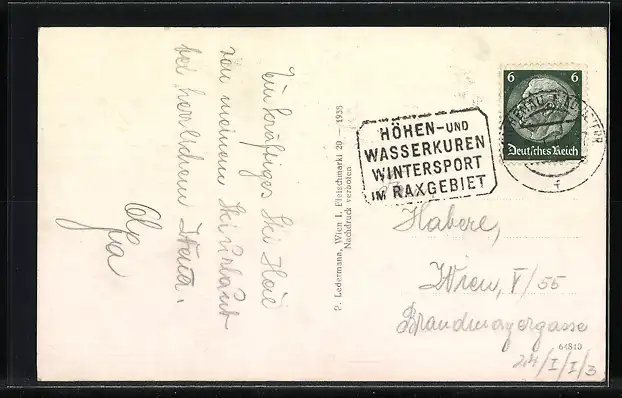 Ein kräftiges Ski Heil
von meinem Skiurlaub
bei herrlichem
P. Ledermann, Wien I, Fleischmarkt 20 — 1935
Nachdruck verboten
HÖHEN-UND
WASSERKUREN
WINTERSPORT
IM RAXGEBIET
6 6
Deutsches Reich
f
Haberl,
Wien, V/55
Brandmayergasse
24/I/I/3
64810